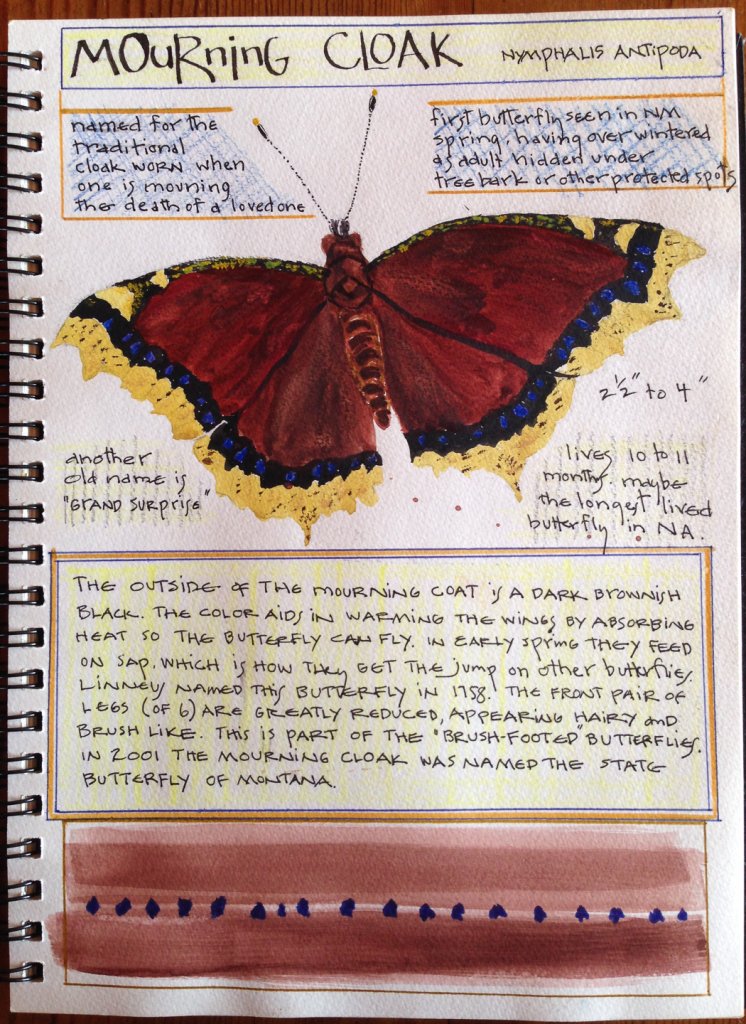 MOURNING CLOAK NYMPHALIS ANTIPODA
named for the
traditional
cloak worn when
one is mourning
the death of a loved one
first butterfly seen in NM
spring, having over wintered
as adult hidden under
tree bark or other protected spots
2 ½" to 4"
another
old name is
"GRAND SURPRISE"
lives 10 to 11
months. maybe
the longest lived
butterfly in NA.
THE OUTSIDE OF THE MOURNING COAT IS A DARK BROWNISH
BLACK. THE COLOR AIDS IN WARMING THE WINGS BY ABSORBING
HEAT SO THE BUTTERFLY CAN FLY. IN EARLY SPRING THEY FEED
ON SAP, WHICH IS HOW THEY GET THE JUMP ON OTHER BUTTERFLIES.
LINNEUS NAMED THIS BUTTERFLY IN 1758. THE FRONT PAIR OF
LEGS (OF 6) ARE GREATLY REDUCED, APPEARING HAIRY AND
BRUSH LIKE. THIS IS PART OF THE "BRUSH-FOOTED" BUTTERFLIES.
IN 2001 THE MOURNING CLOAK WAS NAMED THE STATE
BUTTERFLY OF MONTANA.